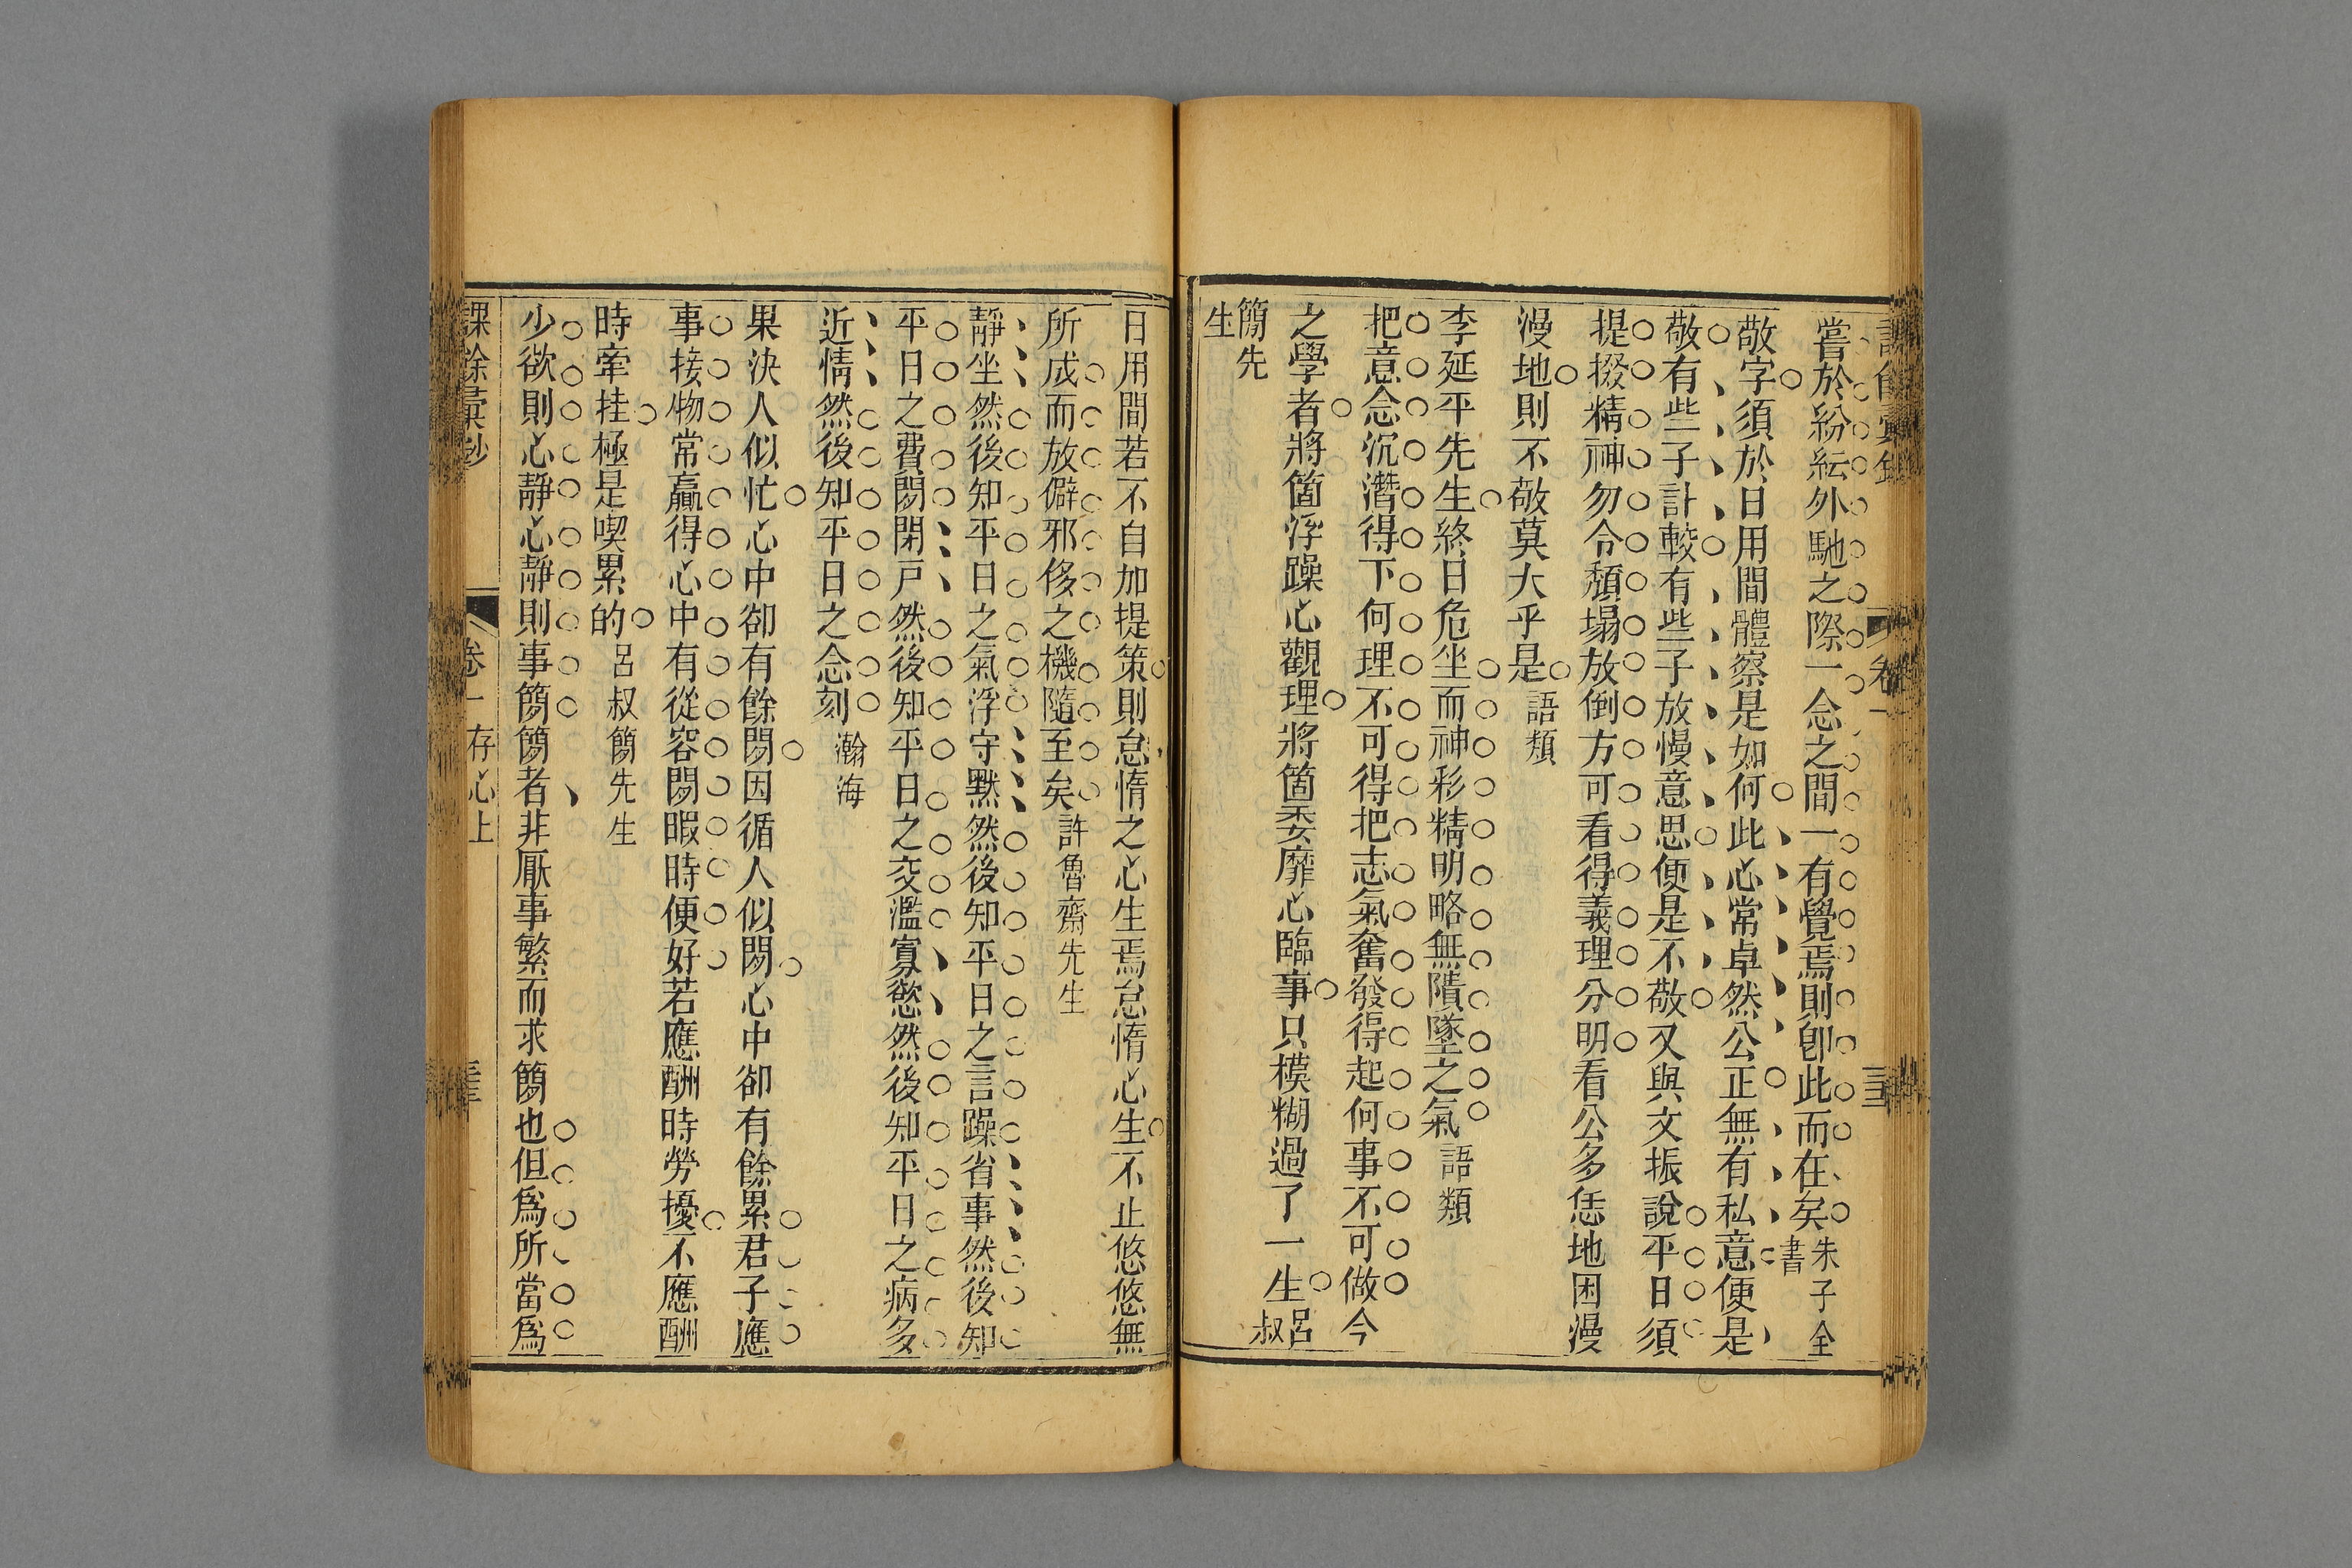 嘗於紛紜外馳之際一念之間一有覺焉則卽此而在矣朱子全書
敬字須於日用間體察是如何此心常卓然公正無有私意便是
敬有些子計較有些子放慢意思便是不敬又與文振說平日須
提掇精神勿令頹塌放倒方可看得義理分明看公多恁地困漫
漫地則不敬莫大乎是語類
李延平先生終日危坐而神彩精明略無隤墜之氣語類
把意念沉潛得下何理不可得把志氣奮發得起何事不可做今
之學者將箇浮躁心觀理將箇委靡心臨事只模糊過了一生呂叔
簡先生
日用間若不自加提策則怠惰之心生焉怠惰心生不止悠悠無
所成而放僻邪侈之機隨至矣許魯齋先生
靜坐然後知平日之氣浮守默然後知平日之言躁省事然後知
平日之費閒閉戸然後知平日之交濫寡慾然後知平日之病多
近情然後知平日之念刻瀚海
果決人似忙心中卻有餘閒因循人似閒心中卻有餘累君子應
事接物常贏得心中有從容閒暇時便好若應酬時勞擾不應酬
時牽挂極是喫累的呂叔簡先生
少欲則心靜心靜則事簡簡者非厭事繁而求簡也但爲所當爲
卷一 存心上